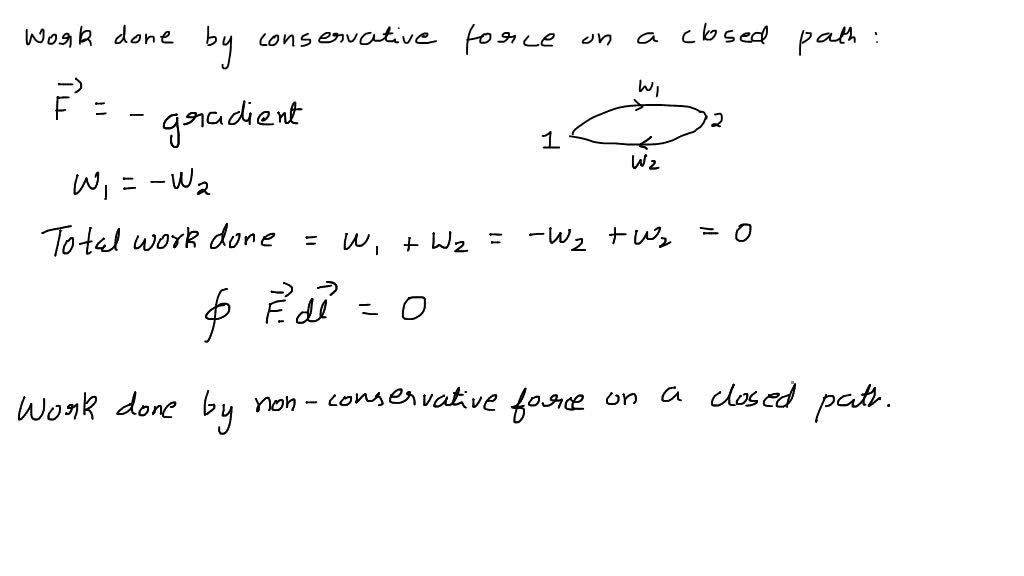 Work done by conservative force on a closed path :
F⃗ = - gradient
W₁
1
2
W₂
W₁ = -W₂
Total work done = W₁ + W₂ = -W₂ + W₂ = 0
∮ F⃗. dl⃗ = 0
Work done by non-conservative force on a closed path.